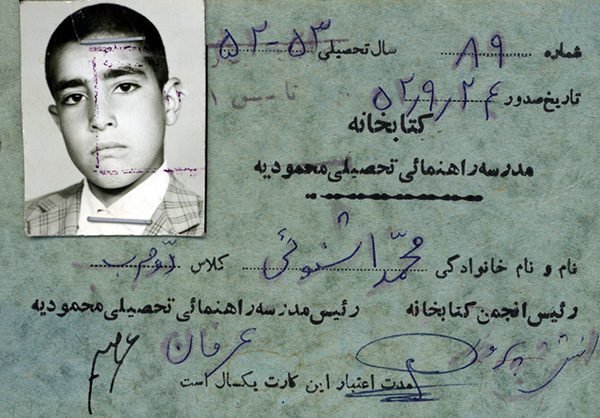 شماره ۸۹ سال تحصیلی ۵۳-۵۲
تاریخ صدور ۵۲/۹/۲۴
کتابخانه
مدرسه راهنمائی تحصیلی محمودیه
نام و نام خانوادگی محمد اشنوئی کلاس
رئیس انجمن کتابخانه رئیس مدرسه راهنمائی تحصیلی محمودیه
عرفان
مدت اعتبار این کارت یکسال است